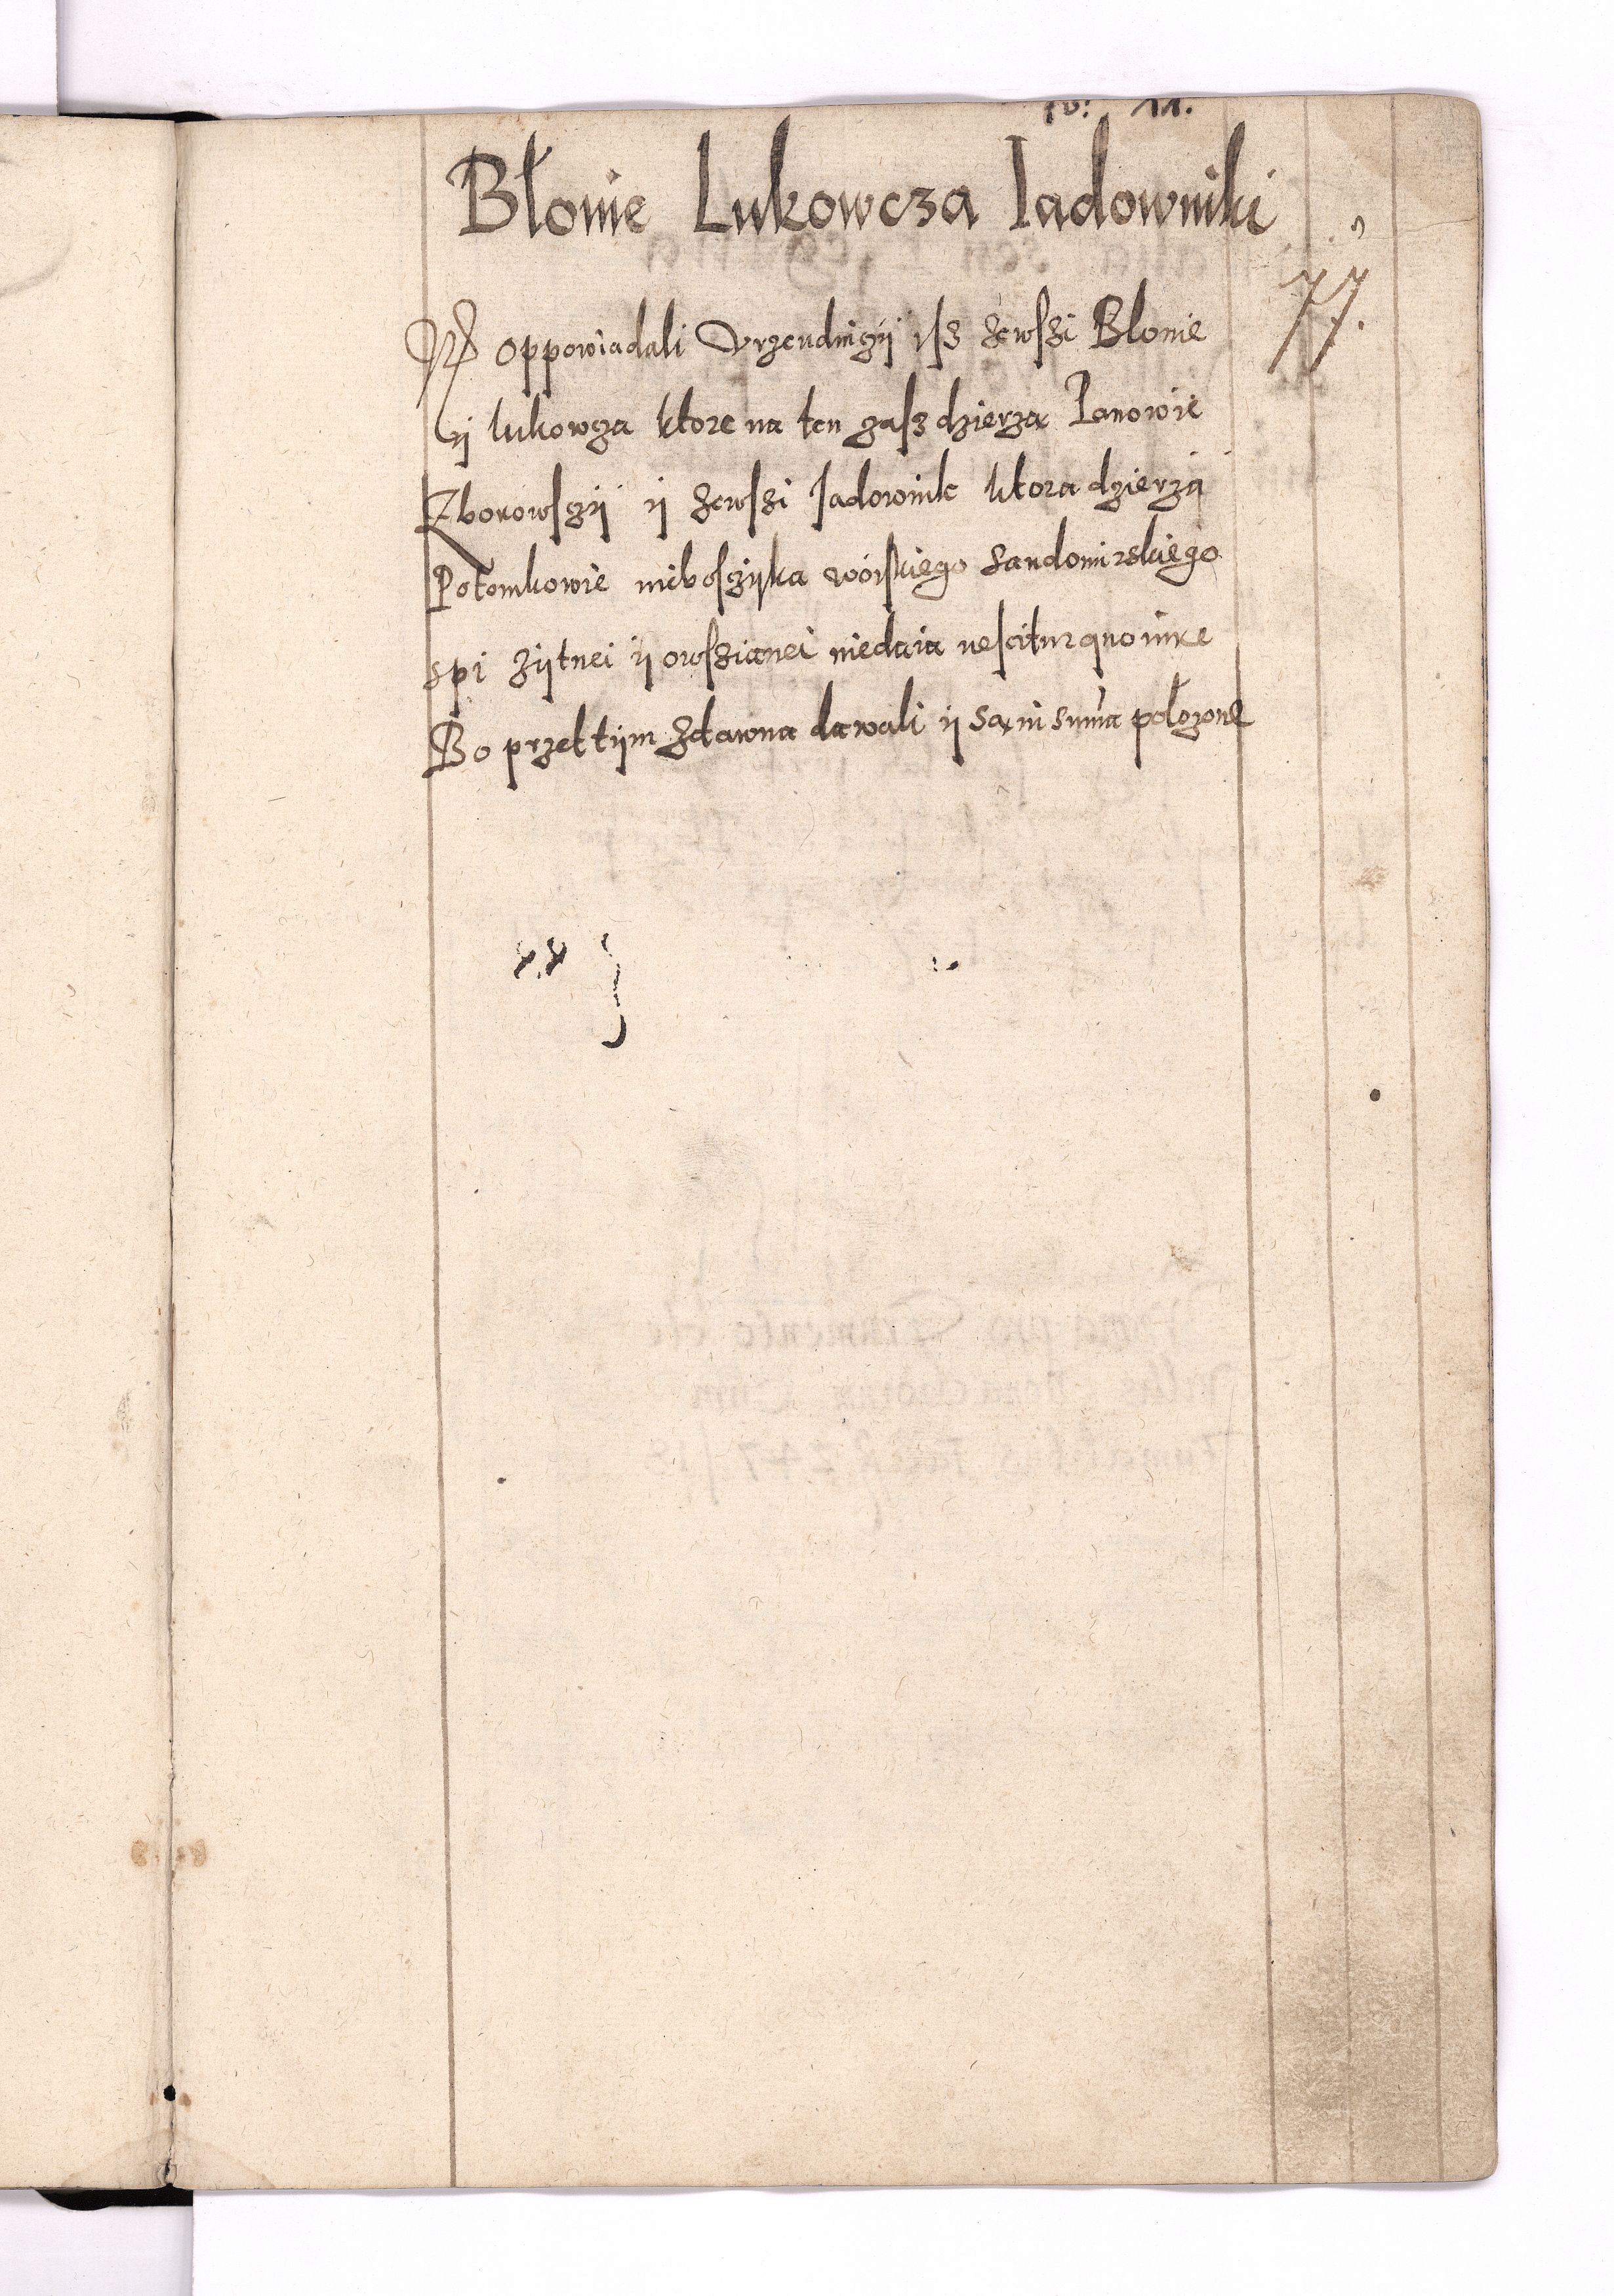 fo: 11.
Błonie Lukowcza Iadowniki
77.
NB oppowiadali Vrzendniczÿ ysz zewszi Blonie
ÿ lukowcza ktore na ten czasz dzierza Panowie
Zborowsczÿ ÿ zewszi Iadownik ktora dzierza
Potomkowie nieboszczÿka woiskiego Sandomirskiego
spi zÿtnei ÿ owszianei niedaia nescitur quo iure
Bo przettÿm zdawna dawali ÿ sa in summa położone